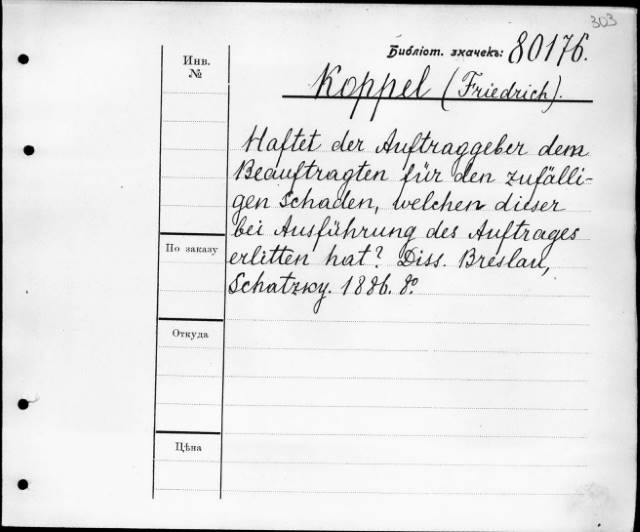 303
Библіот. значекъ: 80176.
Инв.
№
Koppel (Friedrich).
Haftet der Auftraggeber dem
Beauftragten für den zufälli-
gen Schaden, welchen dieser
bei Ausführung des Auftrages
По заказу
erlitten hat? Diss. Breslau,
Schatzky. 1886. 8º.
Откуда
Цѣна